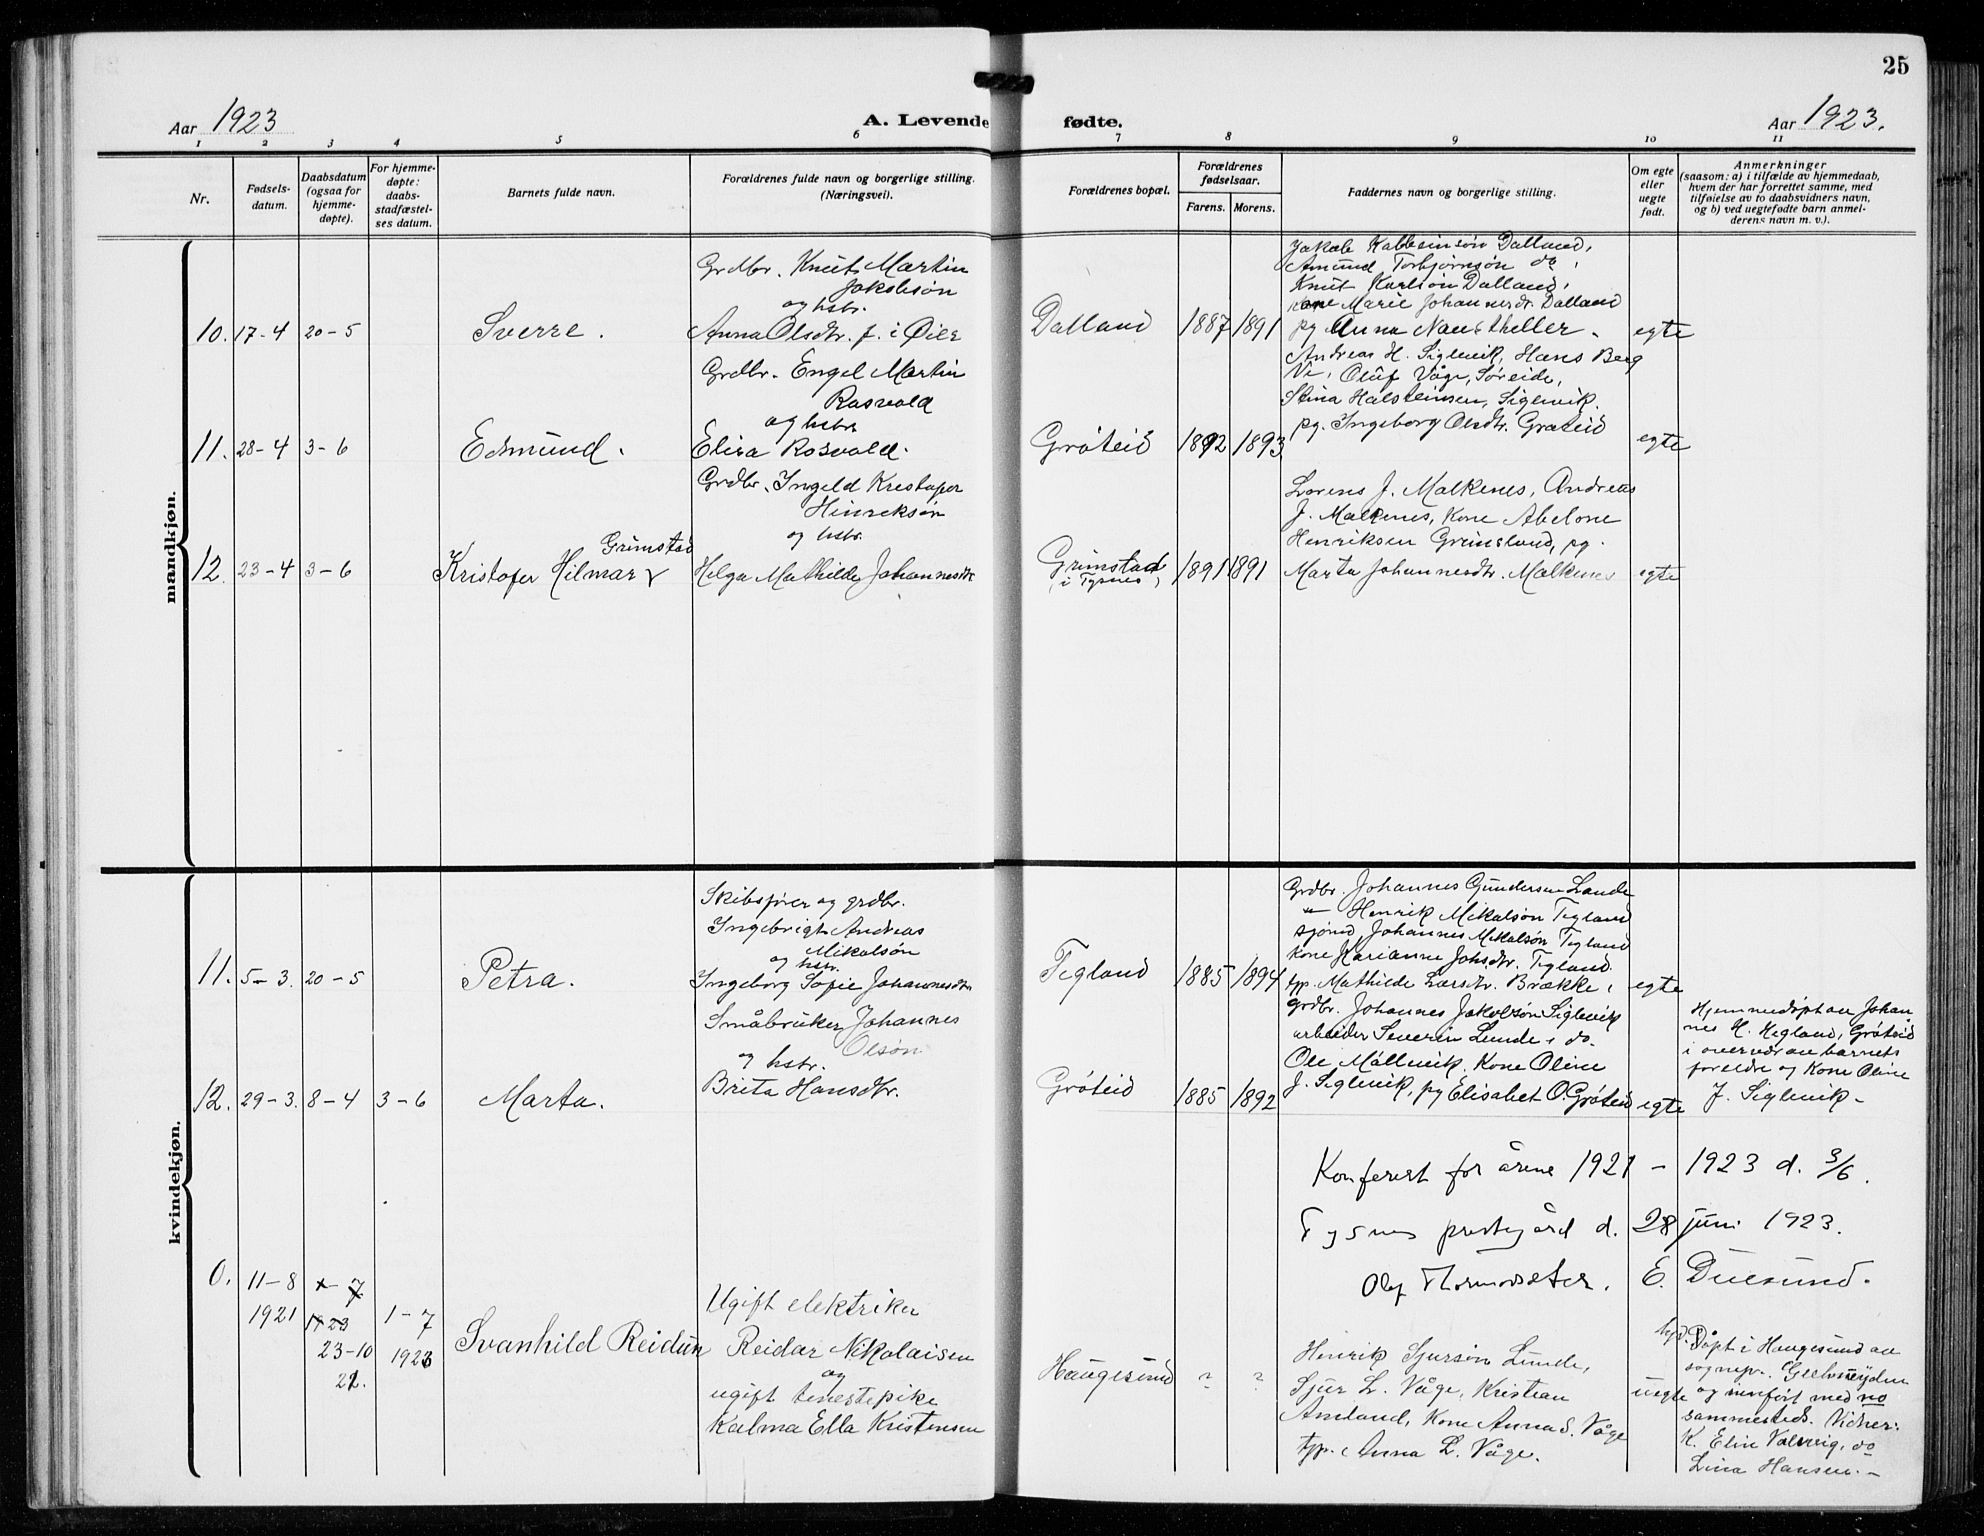 25
Aar 1923
A. Levende fødte.
Aar 1923.
1 2 3 4 5 6 7 8 9 10 11
Nr.
Fødsels-
datum.
Daabsdatum
(ogsaa for
hjemme-
døpte).
For hjemme-
døpte:
daabs-
stadfæstel-
ses datum.
Barnets fulde navn.
Forældrenes fulde navn og borgerlige stilling.
(Næringsvei).
Forældrenes bopæl.
Forældrenes
fødselsaar.
Farens. Morens.
Faddernes navn og borgerlige stilling.
Om egte
eller
uegte
født.
Anmerkninger
(saasom: a) i tilfælde av hjemmedaab,
hvem der har forrettet samme, med
tilføielse av to daabsvidners navn,
og b) ved uegtefødte barn anmel-
derens navn m. v.).
mandkjøn.
10. 17-4 20-5
Sverre.
Grdbr. Knut Martin
Jakobsøn
og hstr.
Anna Olsdtr. f. i Øier
Dalland 1887 1891
Jakob Kabbeinsøn Dalland,
Amund Torbjørnsøn do,
Knut Karlsøn Dalland,
kone Marie Johannesdr. Dalland
pg Anna Naustheller.
egte
11. 28-4 3-6
Edmund.
Grdbr. Engel Martin
Rosvold
og hstr
Elisa Rosvold.
Grøteid 1892 1893
Andreas H. Siglevik, Hans Berg
Ve, Oluf Våge, Søreide,
Stina Halsteinsen, Siglevik.
pg. Ingeborg Olsdtr. Grøteid
egte
12. 23-4 3-6
Grimstad
Kristofer Hilmar
Grdbr. Ingeld Kristofer
Hinreksøn
og hstr.
Helga Mathilde Johannesdtr
Grimstad
i Tysnes,
1891 1891
Lorens J. Malkenes, Andreas
J. Malkenes, Kone Abelone
Henriksen Grimsland, pg.
Marta Johannesdtr. Malkenes
egte
kvindekjøn.
11. 5-3. 20-5
Petra.
Skibsfører og grdbr.
Ingebrigt Andreas
Mikalsøn
og hstr.
Ingeborg Sofie Johannesdtr
Tegland 1885 1894
Grdbr. Johannes Gundersen Lande
" Henrik Mikalsøn Tegland
sjømd, Johannes Mikalsøn Tegland
kone Karianne Johsdtr. Tegland.
tpp. Mathilde Larsdtr. Brække,
egte
12. 29-3. 8-4 3-6
Marta.
Småbruker Johannes
Olsøn
og hstr.
Brita Hansdtr.
Grøteid 1885 1892
grdbr. Johannes Jakobsøn Siglevik
arbeider Severin Lunde, do.
Ole Mållevik, Kone Oline
J. Siglevik, pg Elisabet O. Grøteid
egte
Hjemmedøpt av Johan
nes H. Hegland, Grøteid
i overvær av barnets
foreldre og Kone Oline
J. Siglevik -
Konferert for årene 1921 - 1923 d. 3/6.
Tysnes prestegård d. 28 juni 1923.
Olaf Thormodsæter. E. Duesund.
0. 11-8
1921
7
1923
23-10
21.
1-7
1923
Svanhild Reidun
Ugift elektriker
Reidar Nikolaisen
og
ugift tenestepike
Kalma Ella Kristensen
Haugesund ? ?
Henrik Sjursøn Lunde,
Sjur L. Våge, Kristian
Amland, Kone Anna S. Våge
tpp. Anna L. Våge.
uegte
Døpt i Haugesund av
sognepr. Gjelmuyden
og innført med no
sammesteds. Vidner:
K. Elin Valvrig, do
Lina Hansen. -